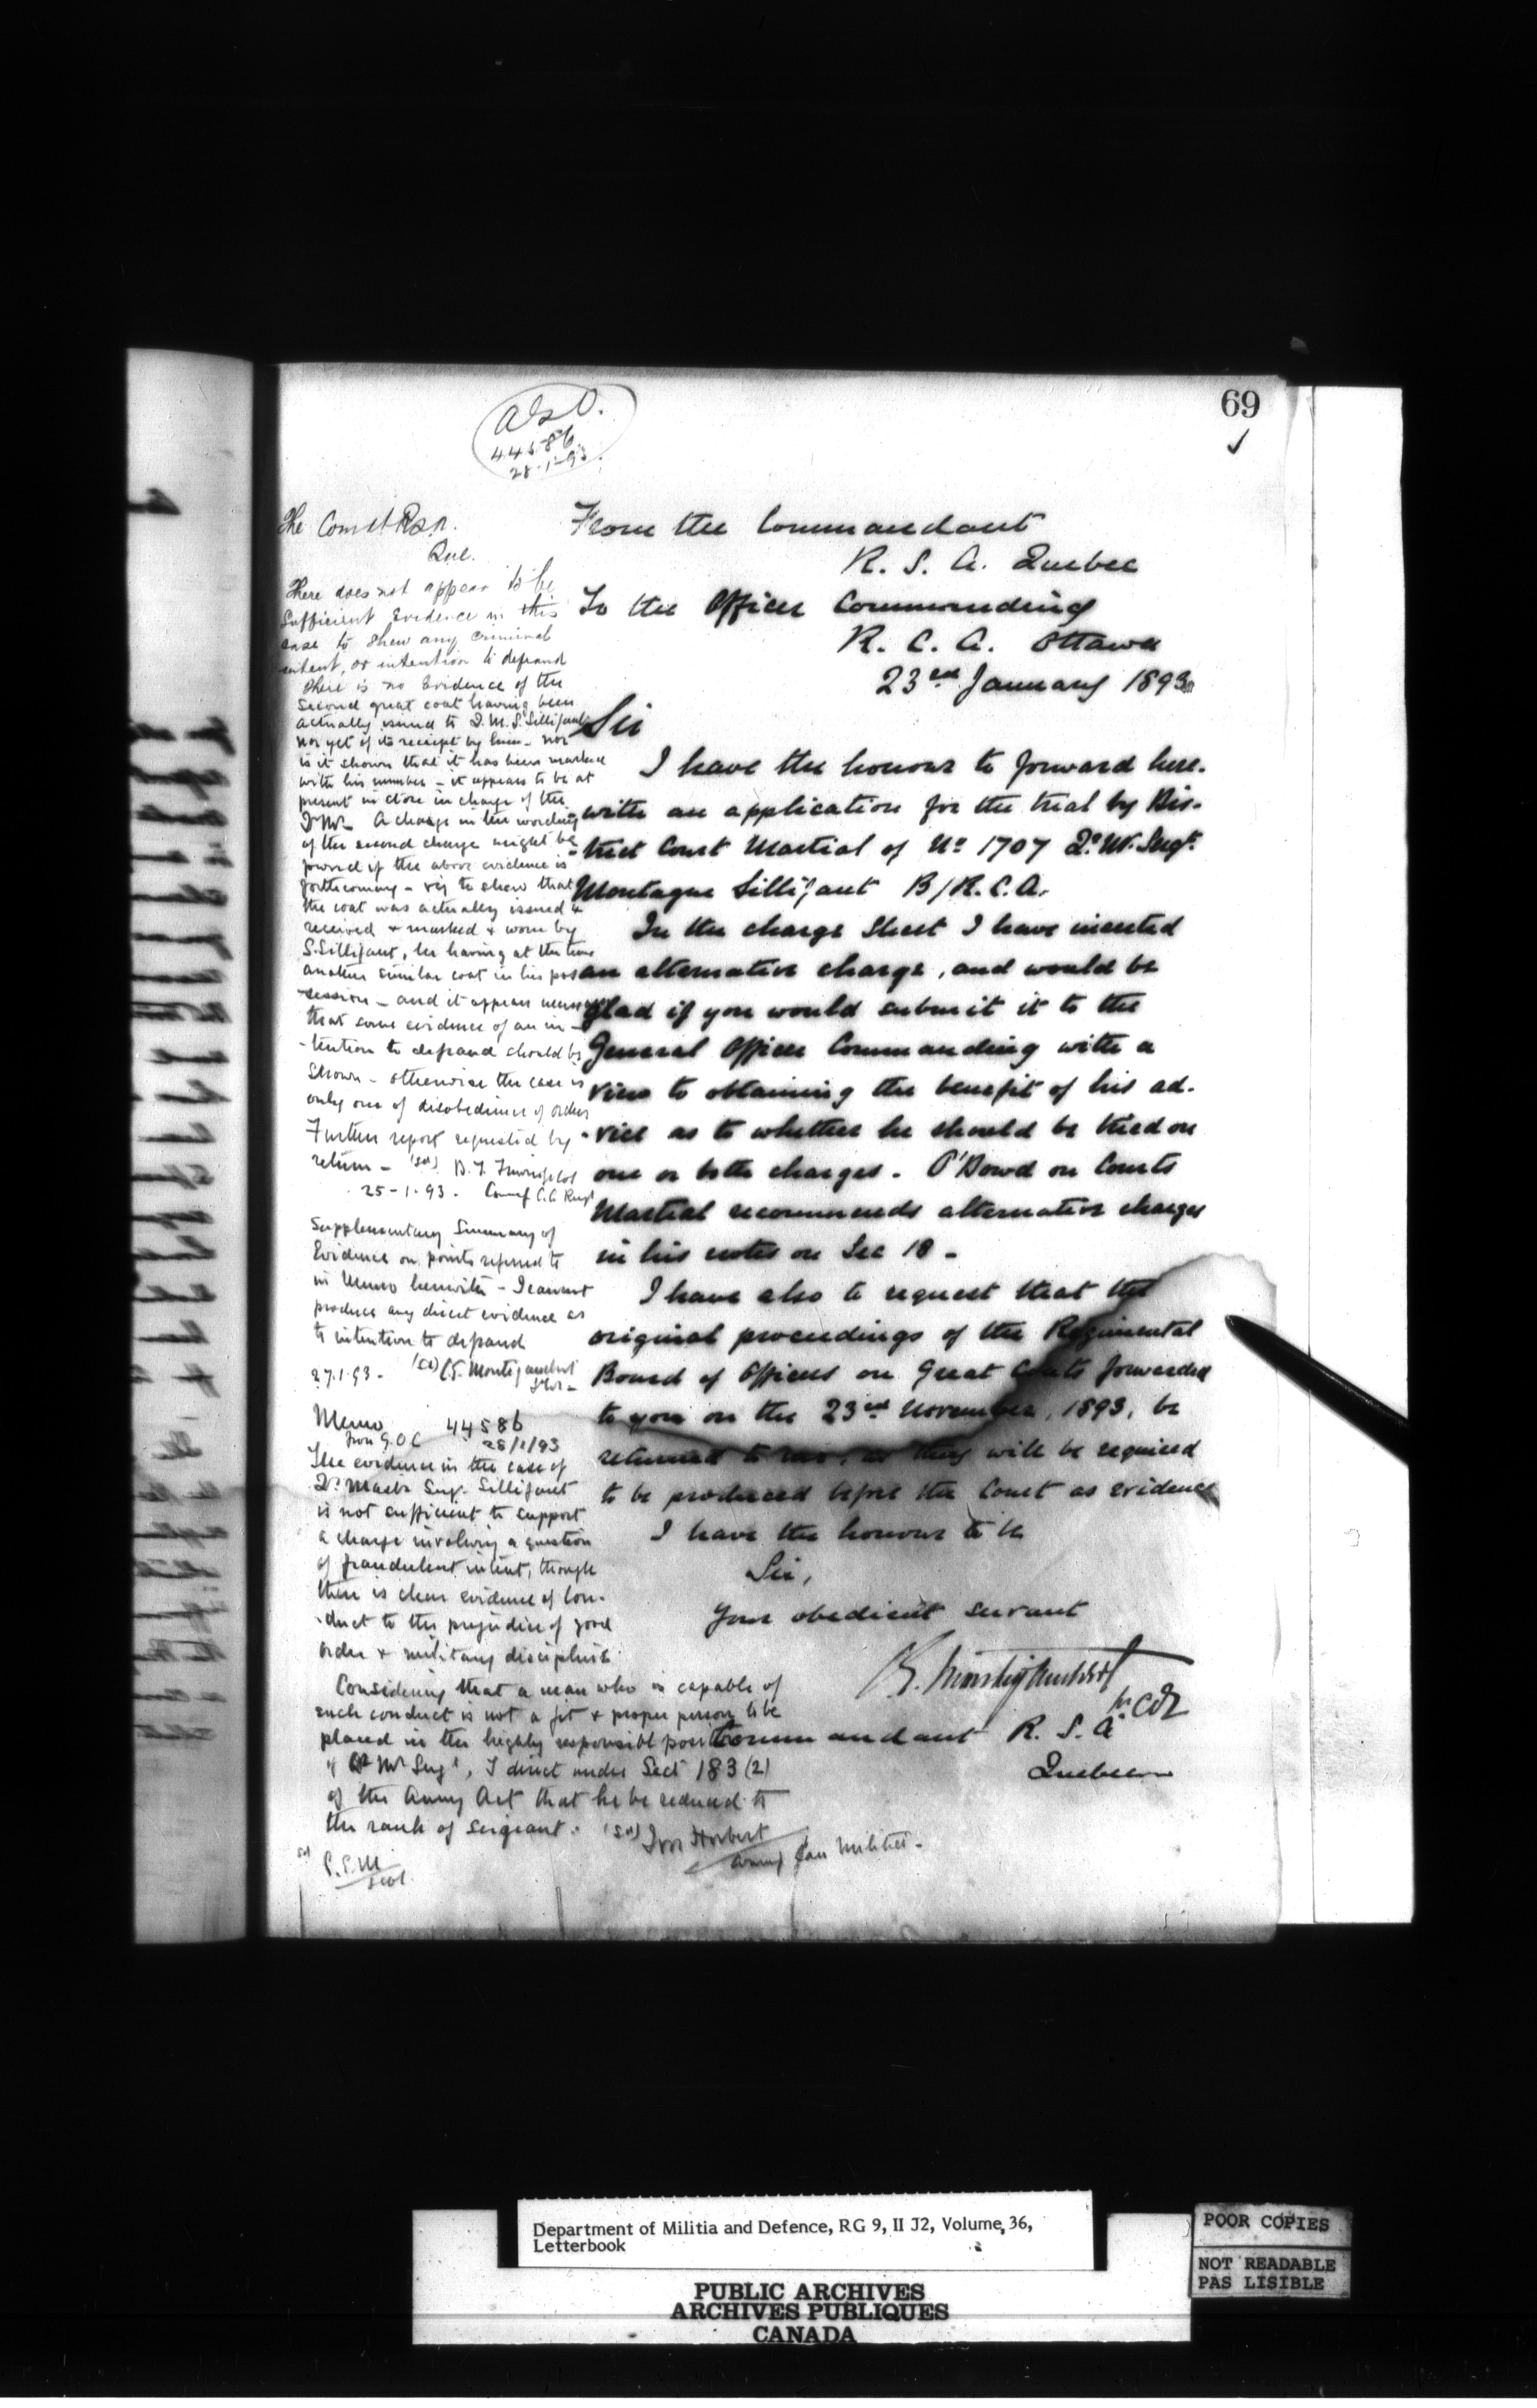 69
44586
28-1-93
The Comdt R.S.A.
Que.
There does not appear to be
sufficient Evidence in this
case to shew any criminal
intent, or intention to defraud
There is no Evidence of the
second great coat having been
actually issued to Q.M.S. Sillifant
nor yet of its receipt by him - nor
is it shown that it has been marked
with his number - it appears to be at
present in store in charge of the
Qr Mr - A change in the wording
of the second charge might be
if the above evidence is
forthcoming - viz to shew that
the coat was actually issued &
received & marked & worn by
S. Sillifant, he having at the time
another similar coat in his pos-
session - and it appears
that some evidence of an in-
-tention to defraud should be
shown - otherwise the case is
only one of disobedience of orders
Further report requested by
return - (sd)
25-1-93.
Supplementary Summary of
Evidence on points referred to
in Memo herewith - I cannot
produce any direct evidence as
to intention to defraud
27.1.93. (sd) C.E. Montizambert
Memo 44586
from G.O.C 28/1/93
The evidence in the case of
Qr Master Sergt Sillifant
is not sufficient to support
a charge involving a question
of fraudulent intent, though
there is clear evidence of con-
-duct to the prejudice of good
order & military discipline.
Considering that a man who is capable of
such conduct is not a fit & proper person to be
placed in the highly responsible position
of Qr Mr Sergt, I direct under Sect 183 (2)
of the Army Act that he be reduced to
the rank of sergeant. (sd) Ivor Herbert
Can Militia -
From the Commandant
R. S. A. Quebec
To the Officer Commanding
R. C. A. Ottawa
23rd January 1893
Sir
I have the honour to forward here-
-with an application for the trial by Dis-
-trict Court Martial of No 1707 Qr Mr Sergt
Montague Sillifant B/R.C.A.
In the charge Sheet I have inserted
an alternative charge, and would be
glad if you would submit it to the
General Officer Commanding with a
view to obtaining the benefit of his ad-
-vice as to whether he should be tried on
one or both charges. O'Dowd on Courts
Martial recommends alternative charges
in his notes on Sec 18 -
I have also to request that the
original proceedings of the Regimental
Board of Officers on Great Coats forwarded
to you on the 23rd November, 1893, be
returned to me, as they will be required
to be produced before the Court as evidence
I have the honour to be
Sir,
Your obedient servant
C.E. Montizambert
Commandant R. S. A
Quebec
Department of Militia and Defence, RG 9, II J2, Volume 36,
Letterbook
PUBLIC ARCHIVES
ARCHIVES PUBLIQUES
CANADA
POOR COPIES
NOT READABLE
PAS LISIBLE